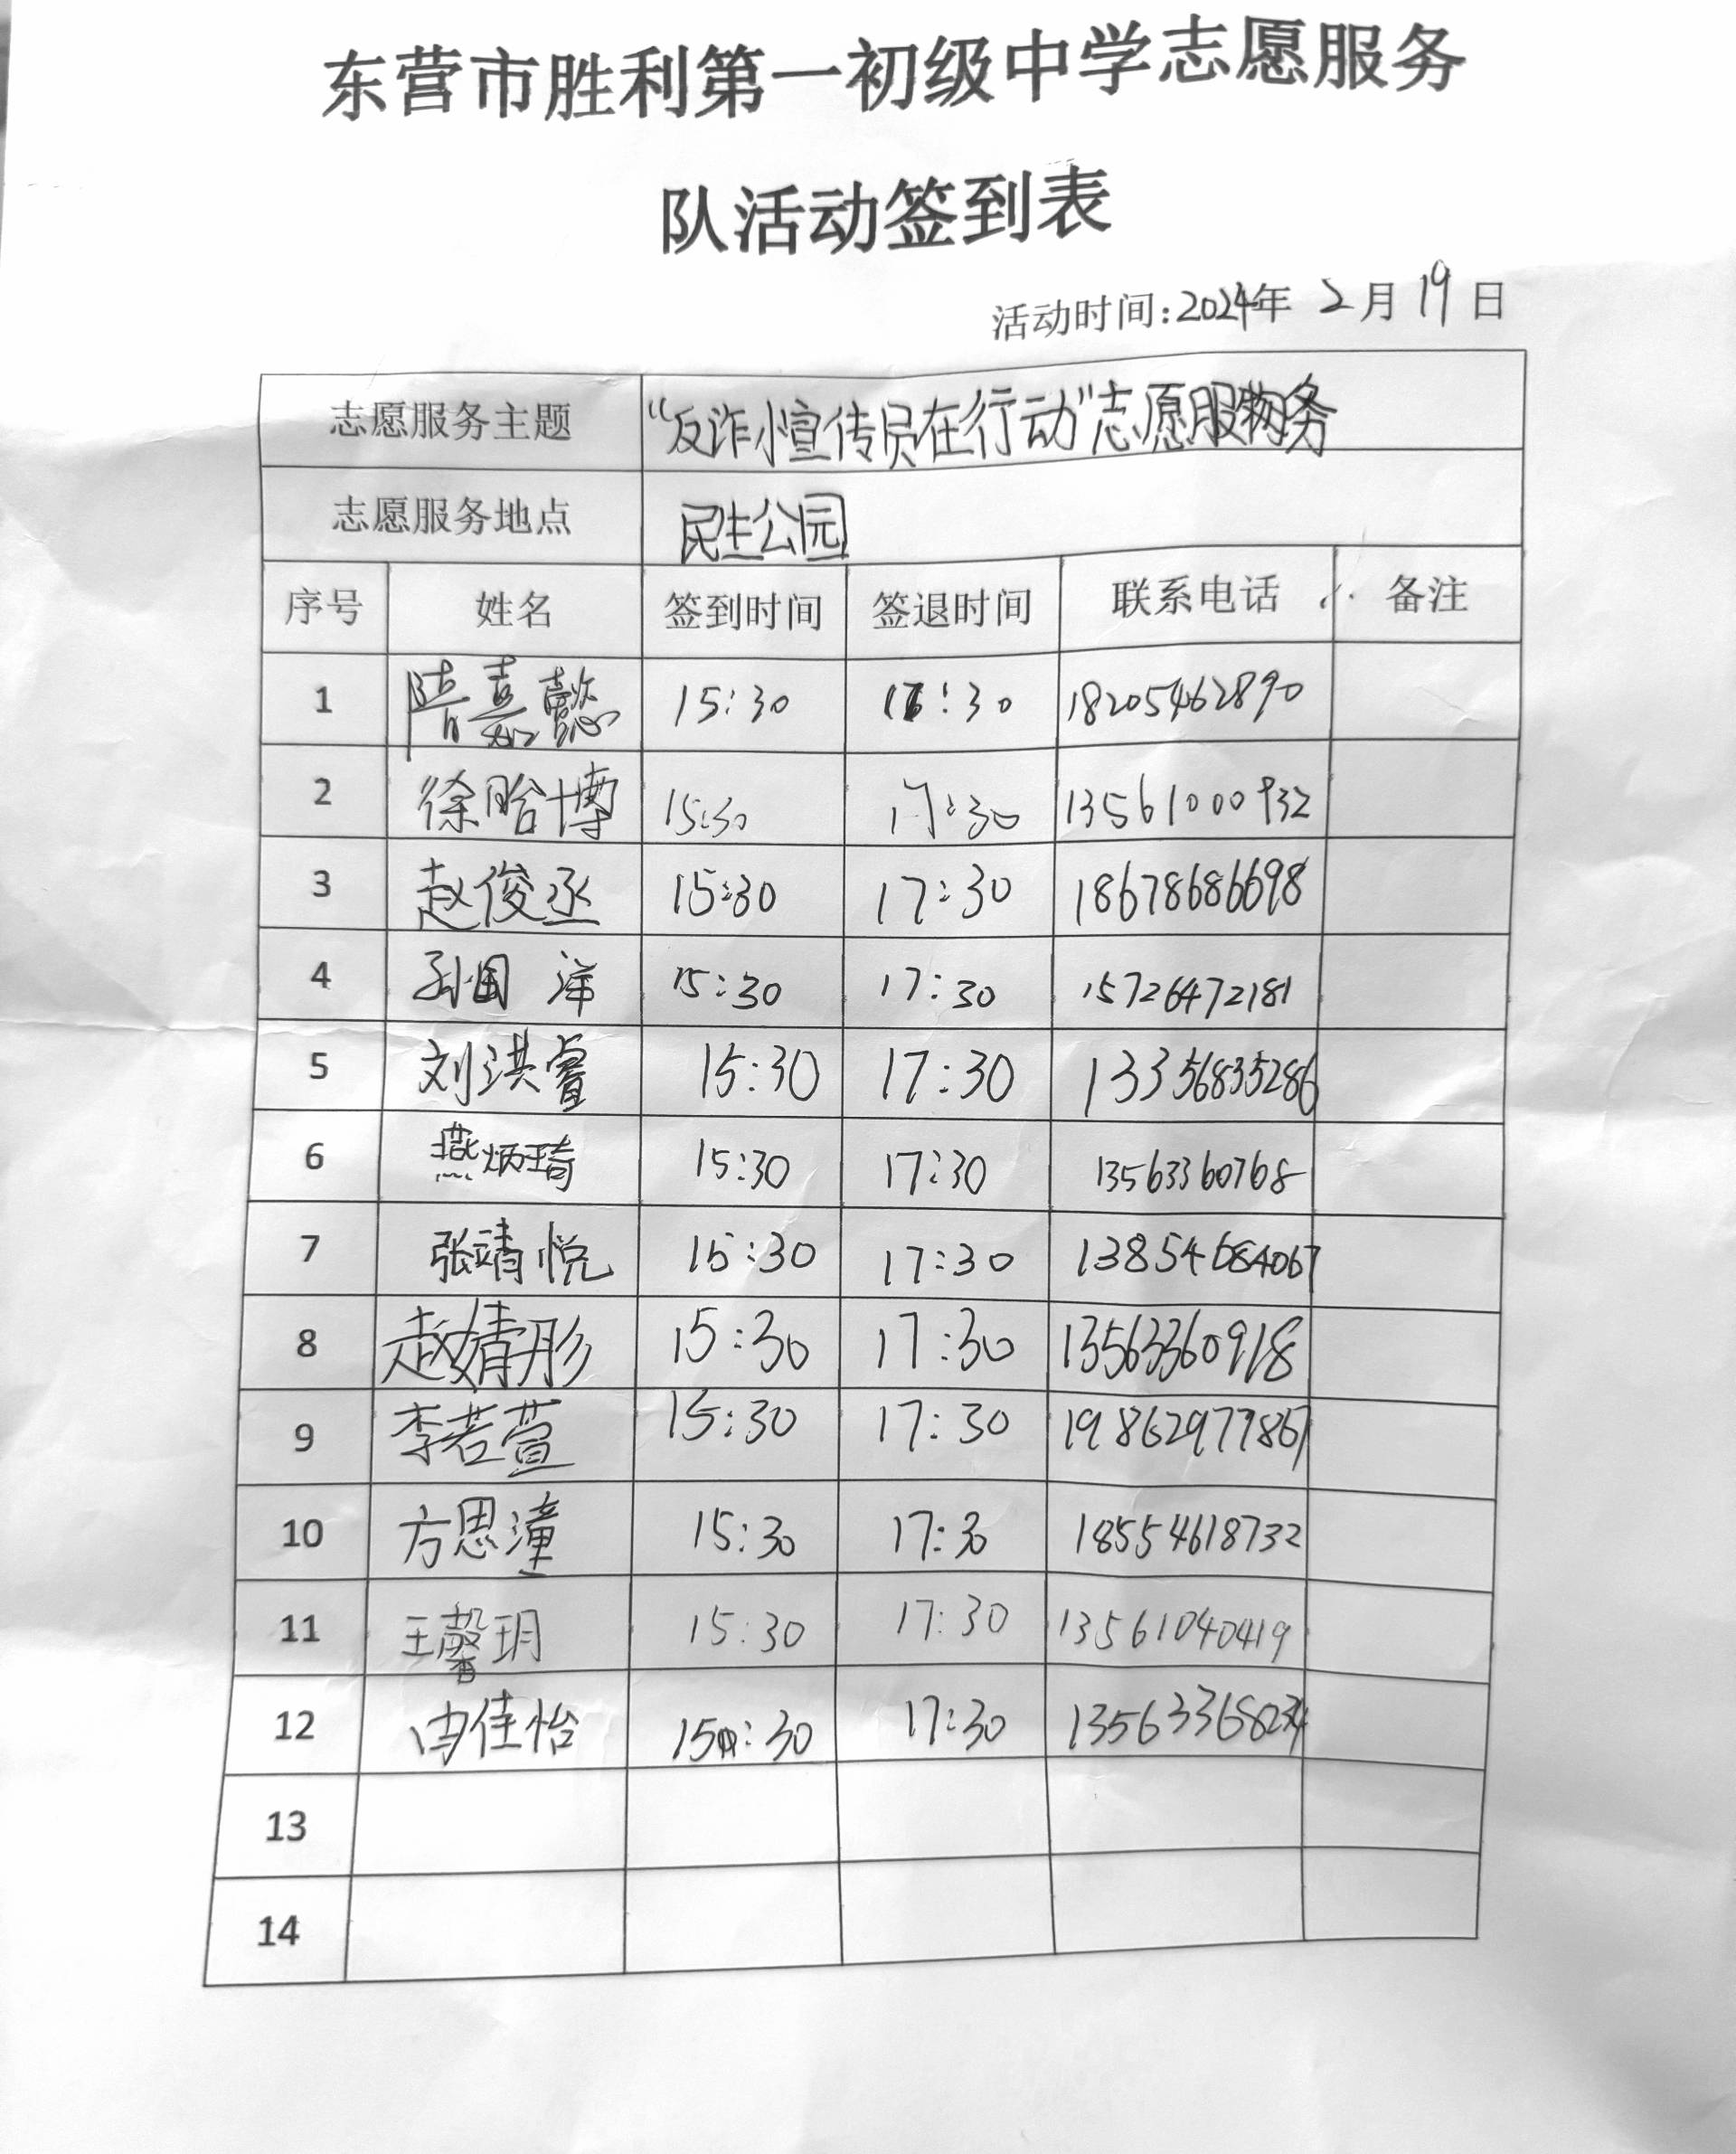 东营市胜利第一初级中学志愿服务
队活动签到表
活动时间:2024年 2月19日
志愿服务主题 “反诈小宣传员在行动”志愿服务
志愿服务地点 民生公园
序号 姓名 签到时间 签退时间 联系电话 备注
1 隋嘉懿 15:30 :30 18205462890
2 徐贻博 15:30 17:30 13561000932
3 赵俊丞 15:30 17:30 18678686698
4 孙国洋 15:30 17:30 15726472181
5 刘洪睿 15:30 17:30 13356835286
6 燕炳琦 15:30 17:30 13563360768
7 张靖悦 15:30 17:30 13854684067
8 赵婧彤 15:30 17:30 13563360918
9 李若萱 15:30 17:30 19862977867
10 方思潼 15:30 17:30 18554618732
11 王馨玥 15:30 17:30 13561040419
12 由佳怡 15:30 17:30
13
14